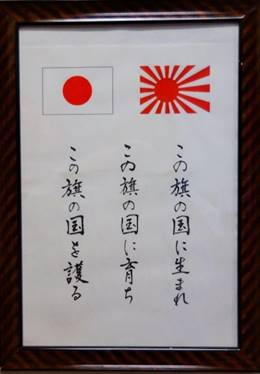 この旗の国に生まれ
この旗の国に育ち
この旗の国を護る